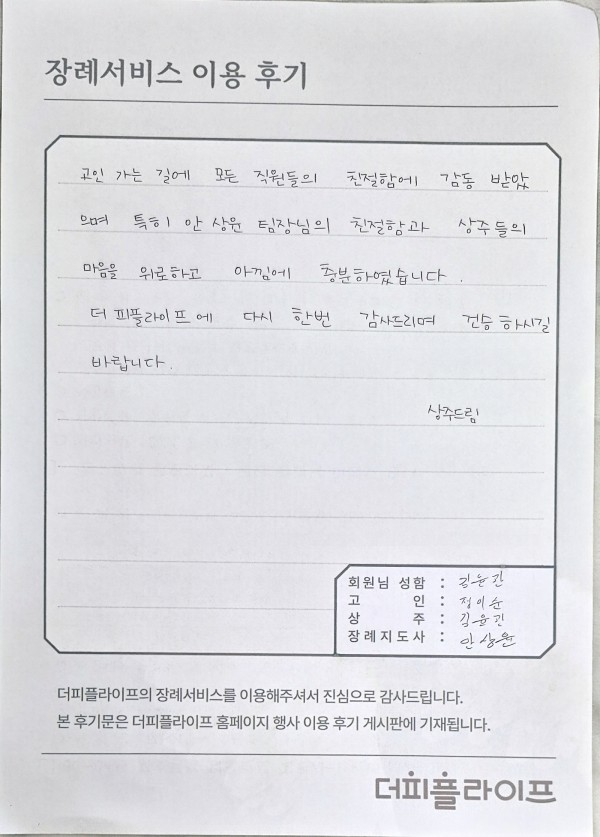 장례서비스 이용 후기
고인 가는 길에 모든 직원들의 친절함에 감동 받았
으며 특히 안 상윤 팀장님의 친절함과 상주들의
마음을 위로하고 아낌에 충분하였습니다.
더 피플라이프에 다시 한번 감사드리며 건승 하시길
바랍니다.
상주드림
회원님 성함 :
고 인 : 정이순
상 주 :
장례지도사 : 안상윤
더피플라이프의 장례서비스를 이용해주셔서 진심으로 감사드립니다.
본 후기문은 더피플라이프 홈페이지 행사 이용 후기 게시판에 기재됩니다.
더피플라이프